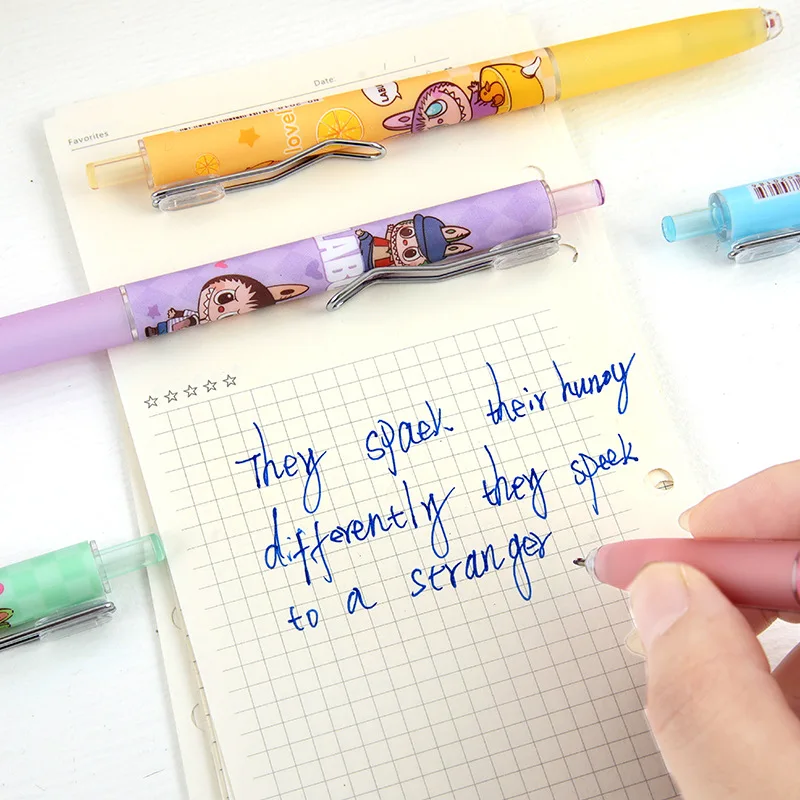 Date: / /
Favorites
love
LAB
☆☆☆☆☆
They spaek their hunoy
differently they speek
to a stranger